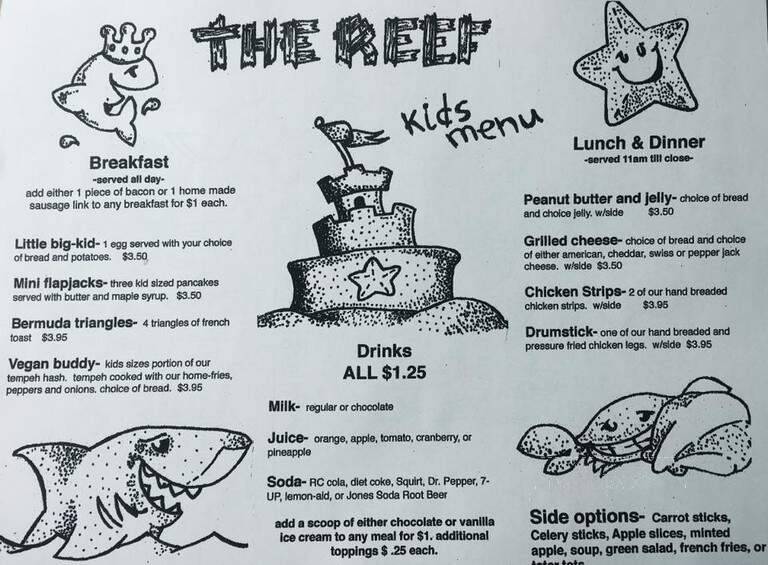 THE REEF
Kids
menu
Breakfast
-served all day-
add either 1 piece of bacon or 1 home made
sausage link to any breakfast for $1 each.
Little big-kid- 1 egg served with your choice
of bread and potatoes. $3.50
Mini flapjacks- three kid sized pancakes
served with butter and maple syrup. $3.50
Bermuda triangles- 4 triangles of french
toast $3.95
Vegan buddy- kids sizes portion of our
tempeh hash. tempeh cooked with our home-fries,
peppers and onions. choice of bread. $3.95
Drinks
ALL $1.25
Milk- regular or chocolate
Juice- orange, apple, tomato, cranberry, or
pineapple
Soda- RC cola, diet coke, Squirt, Dr. Pepper, 7-
UP, lemon-aid, or Jones Soda Root Beer
add a scoop of either chocolate or vanilla
ice cream to any meal for $1. additional
toppings $ .25 each.
Lunch & Dinner
-served 11am till close-
Peanut butter and jelly- choice of bread
and choice jelly. w/side $3.50
Grilled cheese- choice of bread and choice
of either american, cheddar, swiss or pepper jack
cheese. w/side $3.50
Chicken Strips- 2 of our hand breaded
chicken strips. w/side $3.95
Drumstick- one of our hand breaded and
pressure fried chicken legs. w/side $3.95
Side options- Carrot sticks,
Celery sticks, Apple slices, minted
apple, soup, green salad, french fries, or
tater tots